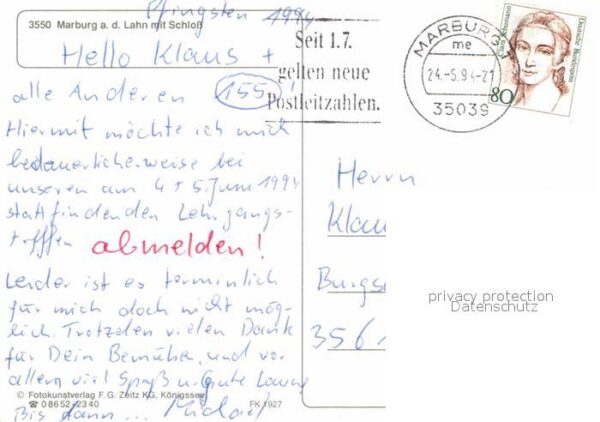 Pfingsten 1994
3550 Marburg a. d. Lahn mit Schloß
Hello Klaus +
alle Anderen (155)!
Hiermit möchte ich mich
bedauerlicherweise bei
unseren am 4 + 5. Juni 1994
stattfindenden Lehrgangs-
treffen abmelden!
Leider ist es terminlich
für mich doch nicht mög-
lich. Trotzdem vielen Dank
für Dein Bemühen, und vor
allem viel Spaß u. gute Laune
© Fotokunstverlag F. G. Zeitz KG, Königssee
☎ 08652-2340
FK 1927
Bis dann... Michael
Seit 1.7.
gelten neue
Postleitzahlen.
MARBURG 1
me
24.-5.94-21
35039
Clara Schumann
Deutsche Bundespost
80
Herrn
Klau
Burgs
356
privacy protection
Datenschutz